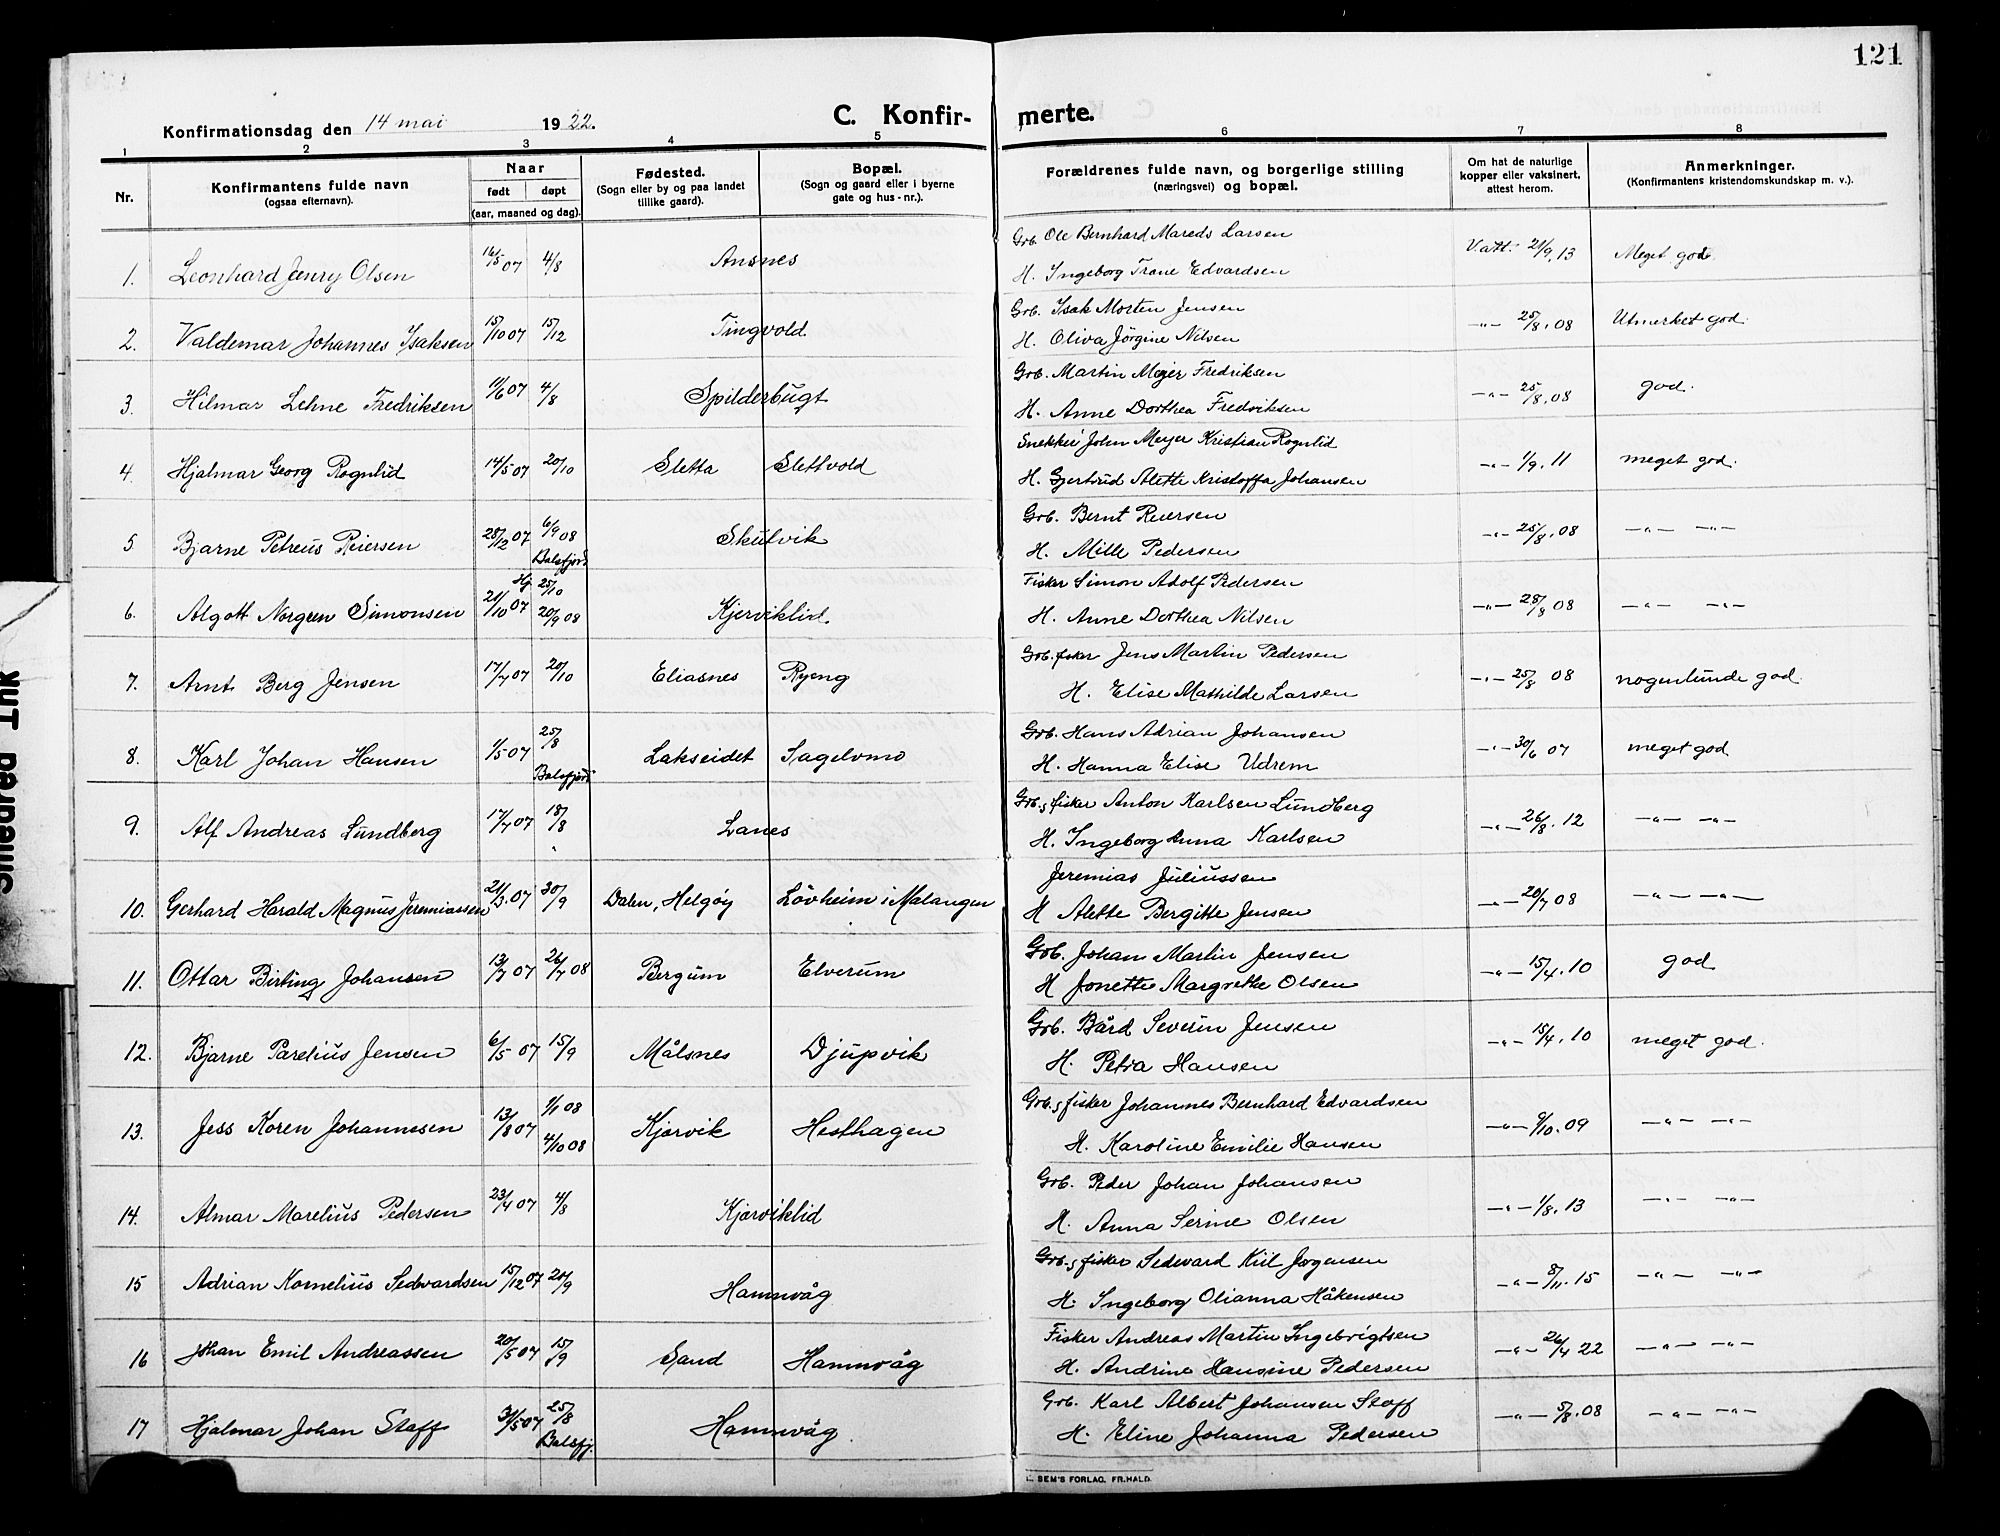 121
Konfirmationsdag den 14 mai 1922. C. Konfir- merte.
1 2 3 4 5 6 7 8
Nr. Konfirmantens fulde navn (ogsaa efternavn). Naar født døpt (aar, maaned og dag). Fødested. (Sogn eller by og paa landet tillike gaard). Bopæl. (Sogn og gaard eller i byerne gate og hus-nr.). Forældrenes fulde navn, og borgerlige stilling (næringsvei) og bopæl. Om hat de naturlige kopper eller vaksinert, attest herom. Anmerkninger. (Konfirmantens kristendomskundskap m. v.).
Grb. Ole Bernhard Mareds Larsen
1. Leonhard Jenry Olsen 16/5 07 4/8 Ansnes Vatt. 21/9, 13 Meget god.
H. Ingeborg Trane Edvardsen
Grb. Isak Morten Jensen
2. Valdemar Johannes Isaksen 15/10 07 15/12 Tingvold -"- 25/8. 08 Utmerket god.
H. Oliva Jörgine Nilsen
Grb. Martin Mejer Fredriksen
3. Hilmar Lehne Fredriksen 11/6 07 4/8 Spilderbugt -"- 25/8. 08 god.
H. Anne Dorthea Fredriksen
Snekker John Meyer Kristian Rognlid
4. Hjalmar Georg Rognlid 14/5 07 20/10 Sletta Slettvold -"- 1/9. 11 meget god.
H. Gjertrud Alette Kristoffa Johansen
Grb. Bernt Reiersen
5 Bjarne Petreus Reiersen 28/12 07 6/9 08 Balsfjord Skutvik -"- 25/8. 08 -"- -"-
H. Mille Pedersen
Fisker Simon Adolf Pedersen
6. Algott Norgren Simonsen 21/10 07 Hj. 25/10 20/9 08 Kjerviklid. -"- 28/8 08 -"- -"-
H. Anne Dorthea Nilsen
Grb. fisker Jens Martin Pedersen
7. Arnt Berg Jensen 17/7 07 20/10 Eliasnes Ryeng -"- 25/8 08 nogenlunde god.
H. Elise Mathilde Larsen
Grb. Hans Adrian Johansen
8. Karl Johan Hansen 1/5 07 25/8 Balsfjord Lakseidet Sagelvmo -"- 30/6 07 meget god
H. Hanna Elise Udrem
Grb. s fisker Anton Karlsen Lundberg
9. Alf Andreas Lundberg 17/7 07 18/8 Lanes -"- 26/8. 12 -"- -"-
H. Ingeborg Anna Karlsen
Jeremias Juliussen
10. Gerhard Harald Magnus Jeremiassen 21/3. 07 30/9 Dalen, Helgøy Lövheim i Malangen -"- 20/7 08 -"- -"-
H Alette Bergitte Jensen
Grb. Johan Martin Jensen
11. Ottar Birting Johansen 13/7 07 26/7 08 Bergum Elverum -"- 15/4. 10 god
H Jonette Margrethe Olsen
Grb. Bård Severin Jensen
12. Bjarne Parelius Jensen 6/5 07 15/9 Målsnes Djupvik -"- 15/4. 10 meget god.
H. Petra Hansen
Grb. s fisker Johannes Bernhard Edvardsen
13. Jess Koren Johannesen 13/8 07 1/1 08 4/10 08 Kjærvik Hesthagen -"- 9/10. 09 -"- -"-
H. Karoline Emilie Hansen
Grb. Peder Johan Johansen
14. Almar Marelius Pedersen 23/4 07 4/8 Kjærviklid -"- 1/8. 13 -"- -"-
H. Anna Serine Olsen
Grb. s fisker Sedevard Kiil Jørgensen
15 Adrian Kornelius Sedvardsen 15/12 07 20/9 Hamnvåg -"- 8/11. 15 -"- -"-
H. Ingeborg Olianna Håkensen
Fisker Andreas Martin Ingebrigtsen
16 Johan Emil Andreassen 20/5 07 15/9 Sand Hamnvåg -"- 26/4 22 -"- -"-
H. Andrine Hansine Pedersen
Grb. Karl Albert Johansen Staff
17 Hjalmar Johan Staff 31/5 07 25/8 Balsfj. Hamnvåg. -"- 5/8. 08 -"- -"-
H. Eline Johanna Pedersen
SEM'S FORLAG, FR.HALD.
Smedrød Ink